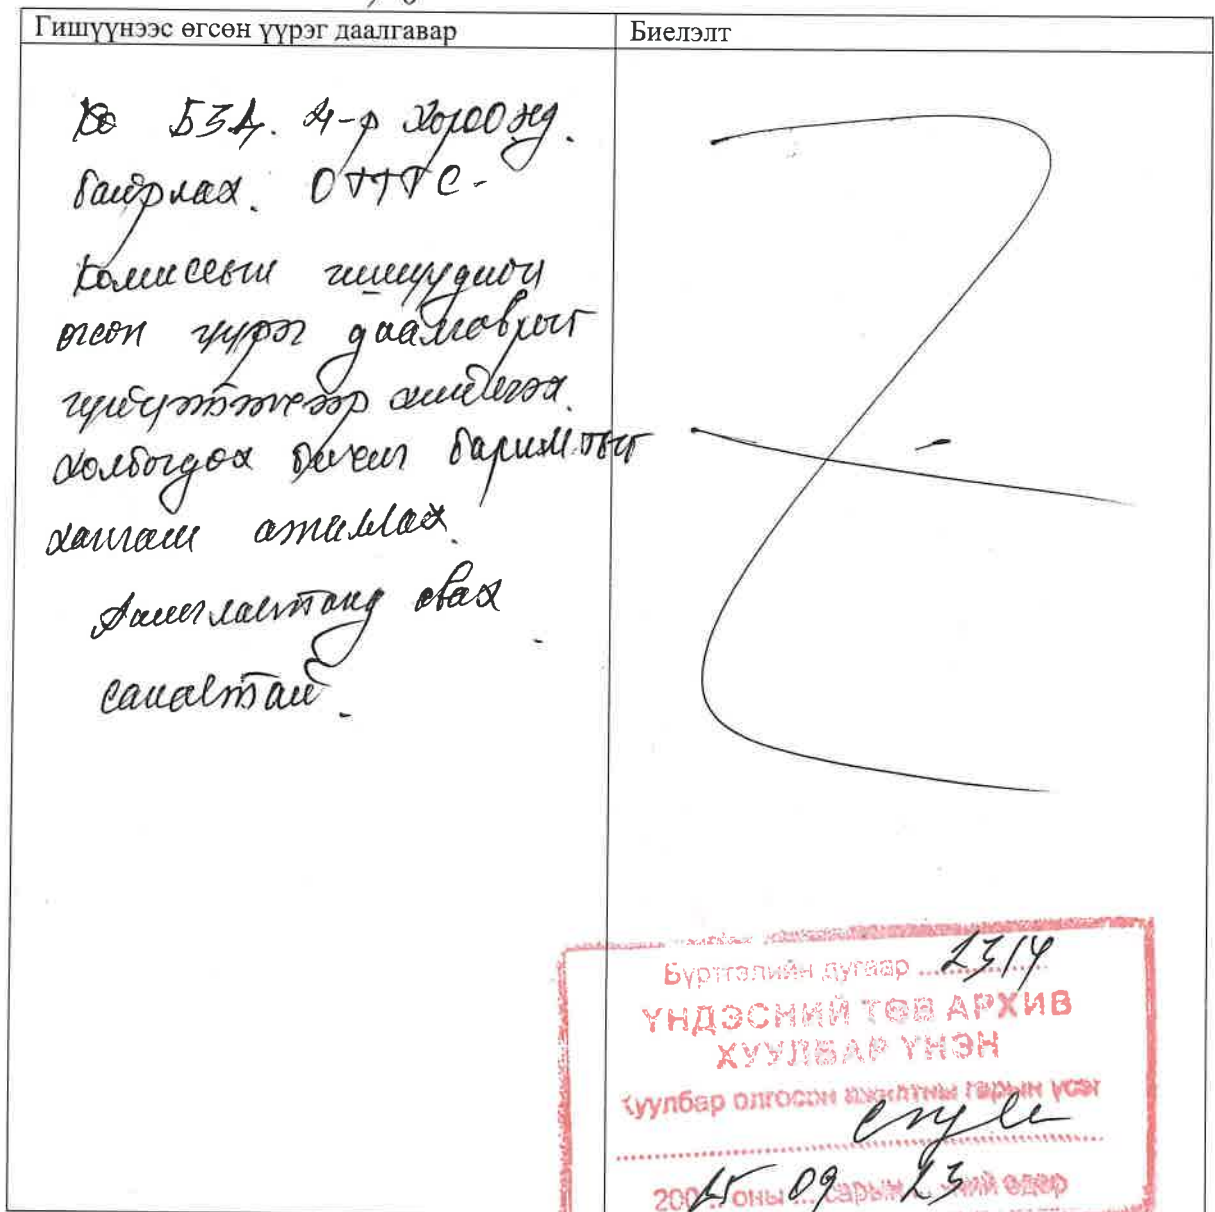 Гишүүнээс өгсөн үүрэг даалгавар
Биелэлт
БЗД. 4-р хороонд.
байрлах. ОТТС-
Комиссын гишүүдийн
өгсөн үүрэг даалгаврыг
гүйцэтгэлээр хийлгэх.
холбогдох бичиг баримтыг
хангаж ажиллах.
Ашиглалтанд авах
саналтай.
Бүртгэлийн дугаар ... 2314
ҮНДЭСНИЙ ТӨВ АРХИВ
ХУУЛБАР ҮНЭН
Хуулбар олгосон ажилтны гарын үсэг
200... 25 оны ... 09 сарын ... 23 ний өдөр